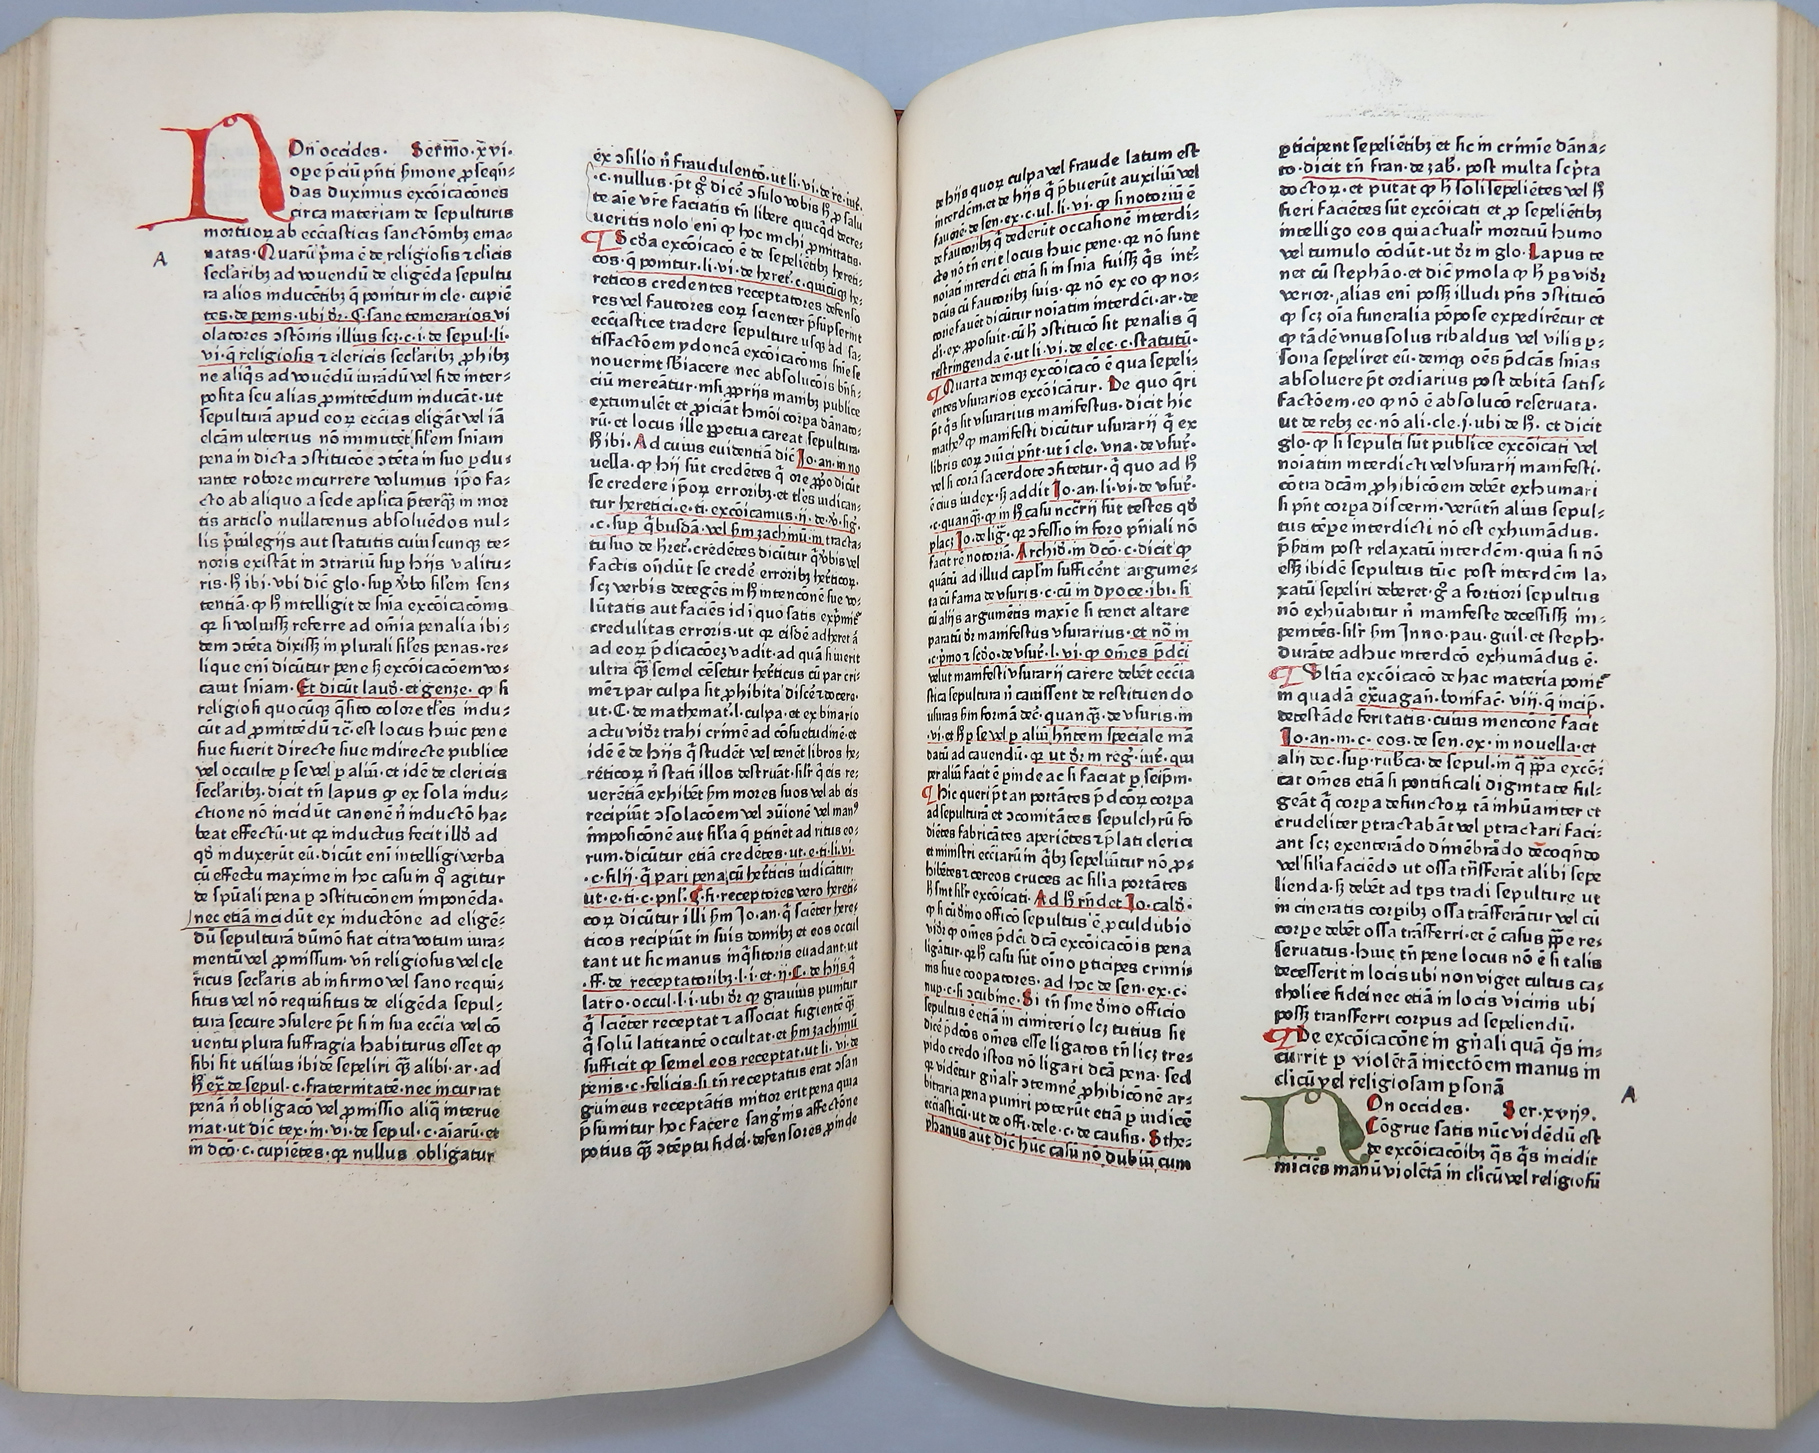 NOn occides. Sermo.xvi.
ope p̄ciū pñti ẜmone ꝓseqñ⸗
das duximus excōicacōnes
circa materiam de sepulturis
mortuoꝝ ab ecc̄iasticis sanctōnibꝫ ema⸗
A
natas. Quarū p̄ma ē de religiosis ⁊ cl̄icis
sec̄laribꝫ ad vouendū de eligēda sepultu
ra alios inducētibꝫ q̄ ponitur in cle. cupiē
tes. de penis. vbi dr̄. C. sane temerarios vi
olatores ɔstōnis illius scꝫ.c.i.de sepul.li.
vi.q̄ religiosis ⁊ clericis sec̄laribꝫ ꝓhibꝫ
ne aliq̄s ad vouēdū iurādū vel fide inter⸗
posita seu alias ꝓmittēdum inducāt.ut
sepulturā apud eoꝝ ecc̄ias eligāt vel iā
elc̄am ulterius nō immutēt. sil̄em sn̄iam
pena in dicta ɔstitucōe ɔtēta in suo ꝑdu⸗
rante robore incurrere volumus ip̄o fa⸗
cto ab aliquo a sede aplica p̄terqꝫ in mor
tis articl̄o nullatenus absoluēdos nul⸗
lis p̄uilegijs aut statutis cuiuscunqꝫ te⸗
noris existāt in ɔtrariū suꝑ hijs valitu⸗
ris. ħ ibi. vbi dic̄ glo. suꝑ v̄bo sil̄em sen⸗
tentiā. ꝙ ħ intelligit de sn̄ia excōicacōnis
qꝛ si voluissꝫ referre ad om̄ia penalia ibi⸗
dem ɔtēta dixissꝫ in plurali sil̄es penas.re⸗
lique eni dicūtur pene ħ excōicacōem vo⸗
cauit sn̄iam. Et dicūt laud̄. et genze. ꝙ si
religiosi quocūqꝫ q̄sito colore tl̄es indu⸗
cūt ad ꝓmittēdū ⁊c̄.est locus huic pene
siue fuerit directe siue indirecte publice
vel occulte ꝑ se vel ꝑ aliū.et idē de clericis
sec̄laribꝫ. dicit tn̄ lapus ꝙ ex sola indu⸗
ctione nō incidūt canonē n̄ inductō ha⸗
beat effectū.ut qꝛ inductus fecit illd̄ ad
qd̄ induxerūt eū.dicūt eni intelligi verba
cū effectu maxime in hoc casu in q̊ agitur
de sp̄uali pena ꝑ ɔstituconem imponēda.
nec etiā incidūt ex inductōne ad eligē⸗
dū sepulturā dūmō fiat citra votum iura⸗
mentū vel ꝓmissum. vn̄ religiosus vel cle
ricus sec̄laris ab infirmo vel sano requi⸗
situs vel nō requisitus de eligēda sepul⸗
tura secure ɔsulere p̄t si in sua ecc̄ia vel cō
uentu plura suffragia habiturus esset ꝙ
sibi sit utilius ibidē sepeliri qꝫ alibi. ar. ad
ħ ex̄.de sepul.c.fraternitatē.nec incurrat
penā n̄ obligacō vel ꝓmissio aliq̄ interue
niat. ut dic̄ tex. in. vi. de sepul. c. aiarū. et
in dco.c.cupiētes. qꝛ nullus obligatur
ex ɔsilio n̄ fraudulentō.ut li.vi.de re.iur̄.
.c.nullus. p̄t g̊ dicē ɔsulo vobis ħ ꝓ salu
te aīe vr̄e faciatis tn̄ libere quicqd̄ decre⸗
ueritis nolo eni ꝙ hoc michi ꝓmittatis.
¶ Scd̄a excōicacō ē de sepeliētibꝫ hereti⸗
cos.q̄ ponitur.li.vi.de heret̄.c.quicūqꝫ he⸗
reticos credentes receptatores defenso
res vel fautores eoꝝ scienter p̄supserint
ecc̄iastice tradere sepulture usqꝫ ad sa⸗
tisfactōem ydoneā excōicacōnis sn̄ie se
nouerint sbiacere nec absolucōis bn̄fi⸗
ciū mereātur.nisi ꝓprijs manibꝫ publice
extumulēt et ꝓiciāt hm̄oi corpa dānato⸗
rū.et locus ille ꝑpetua careat sepultura.
ħ ibi. Ad cuius euidentiā dic̄ Io.an.in no
uella.ꝙ hij sūt credētes q̄ ore ꝓprio dicūt
se credere ip̄oꝝ erroribꝫ.et tl̄es iudican⸗
tur heretici.e.ti.excōicamus.ij.de.v̄.sig.
.c.suꝑ q̄busdā.vel ẜm zachm̄ū.in tracta⸗
tu suo de hret̄.credētes dicūtur q̄ v̄bis vel
factis on̄dūt se credē erroribꝫ her̄ticoꝝ.
scꝫ verbis detegēs in ħ intenconē sue vo⸗
lūtatis aut faciēs id i quo satis exp̄mit̄
credulitas erroris.ut qꝛ eisdē adheret ā
ad eoꝝ p̄dicacōeꝫ vadit.ad quā si iuerit
ultra qꝫ semel cēsetur her̄ticus cū par cri⸗
mē ⁊ par culpa sit ꝓhibita discē ⁊ docere.
ut.C.de mathemat̄.l.culpa.et ex binario
actu vid̄r trahi crimē ad cōsuetudinē.et
idē ē de hijs q̄ studēt vel tenēt libros he⸗
reticoꝝ n̄ stati illos destruāt.sil̄r q̄ eis re⸗
uerētiā exhibēt ẜm mores suos vel ab eis
recipiūt ɔsolacoem vel ɔuionē vel man⁹
imposiconē aut silia q̄ ꝑtinēt ad ritus eo⸗
rum.dicūtur etiā credētes.ut.e.ti.li.vi.
.c.filij.q̄ pari pena cū her̄ticis iudicātur.
ut.e.ti.c.pn̄l. ¶ si. receptores vero hereti⸗
coꝝ dicūtur illi ẜm Io.an.q̄ sciēter here⸗
ticos recipiūt in suis domibꝫ et eos occul
tant ut sic manus inq̄sitoris euadant.ut
.ff.de receptatoribꝫ.l.i.et.ij.C.de hijs q̄
latro.occul.l.i.ubi dr̄ ꝙ grauius puniūtur
q̄ sciēter receptat ⁊ associat fugientē qꝫ
q̄ solū latitantē occultat.et ẜm zachm̄ū
sufficit ꝙ semel eos receptat.ut li.vi.de
penis.c.felicis.si tn̄ receptatus erat ɔsan
guineus receptātis mitior erit pena quia
p̄sumitur hoc facere sang̊nis affectōne
potius qꝫ ɔtēptu fidei.defensores ꝓinde
de hijs quoꝝ culpa vel fraude latum est
interdc̄m.et de hijs q̄ p̄buerūt auxiliū vel
fauorē.de sen.ex.c.ul.li.vi.ꝙ si notoriū ē
de fautoribꝫ q̄ dederūt occasionē interdi⸗
cto nō tn̄ erit locus huic pene. qꝛ nō sunt
noīati interdc̄i etiā si in sn̄ia fuissꝫ q̄s int̄⸗
dc̄us cū fautoribꝫ suis. qꝛ nō ex eo ꝙ no⸗
torie fauet dicūtur noīatim interdc̄i.ar.de
di.ex.ꝓposuit.cū ħ ɔstitucō sit penalis q̄
restringenda ē.ut li.vi.de elec.c.statutū.
¶ Quarta deniqꝫ excōicacō ē qua sepeli⸗
entes vsurarios excōicātur. De quo q̄ri
p̄t q̄s sit vsurarius manifestus.dicit hic
mathe⁹ ꝙ manifesti dicūtur vsurarij q̄ ex
libris eoꝝ ɔuici pn̄t.ut i cle.vna.de vsur̄.
vel si corā sacerdote ɔfitetur.q̄ quo ad ħ
ē eius iudex.ħ addit Io.an.li.vi.de vsur̄.
.c.quanqꝫ.ꝙ in ħ casu necc̄rij sūt testes qd̄
placꝫ Io.de liḡ.qꝛ ɔfessio in foro pn̄iali nō
facit rē notoriā. Archid̄.in dco.c.dicit ꝙ
quātū ad illud capl̄m sufficent argumē⸗
ta cū fama de vsuris.c.cū in dyoce.ibi.si
cū alijs argumētis maxīe si tenet altare
paratū dr̄ manifestus vsurarius.et nō in
.c.p̄mo ⁊ scd̄o.de vsur̄.l.vi.ꝙ om̄es p̄dc̄i
velut manifesti vsurarij carere debēt eccia
stica sepultura n̄ cauissent de restituendo
usuras ẜm formā dec̄.quanqꝫ.de vsuris.in
.vi.et ħ ꝑ se vel ꝑ aliū hn̄tem speciale mā
datū ad cauendū.qꝛ ut dr̄ in reḡ.iur̄.qui
per aliū facit ē ꝑinde ac si faciat ꝑ seip̄m.
¶ Hic queri p̄t an portātes p̄dcōꝝ corpa
ad sepulturā et ɔcomitātes sepulchrū fo
diētes fabricātes aperiētes ⁊ p̄lati clerici
et ministri ecciarū in q̄bꝫ sepeliūtur nō ꝓ⸗
hibētes ⁊ cereos cruces ac silia portātes
ħ sint sil̄r excōicati. Ad ħ rn̄d et Io.cald̄.
ꝙ si cū dm̄o officō sepultus ē ꝓculdubio
vid̄r ꝙ om̄es p̄dc̄i dc̄ā excōicacōis pena
ligātur.qꝛ ħ casu sūt oīno ꝑticipes crimis
nis siue cooꝑatores.ad hoc de sen.ex.c.
nup.c.si ɔcubine. Si tn̄ sine dm̄o officio
sepultus ē etiā in cimiterio scꝫ tutius sit
dicē p̄dcōs omēs esse ligatos tn̄ licꝫ tre⸗
pido credo istos nō ligari dcā pena. sed
qꝛ videtur gn̄alr̄ ɔtemnē ꝓhibiconē ar⸗
bitraria pena puniri poterūt etiā ꝑ iudicē
ecc̄iasticū.ut de offi.dele.c.de causis. Sthe⸗
phanus aut dic̄ hūc casū nō dubiū cum
ꝑticipent sepeliētibꝫ et sic in crimīe dāna⸗
to.dicit tn̄ fran.de zab̄.post multa scp̄ta
doctoꝝ.et putat ꝙ ħ soli sepeliētes vel ħ
fieri faciētes sūt excōicati et ꝓ sepeliētibꝫ
intelligo eos qui actualr̄ mortuū humo
vel tumulo cōdūt.ut dr̄ in glo. Lapus te
net cū stephāo.et dic̄ ymola ꝙ ħ ꝑs vid̄r
verior. alias eni possꝫ illudi pn̄s ɔstitucō
ꝙ scꝫ oīa funeralia pōpose expedirētur et
ꝙ tādē vnus solus ribaldus vel vilis ꝑ⸗
sona sepeliret eū.demqꝫ oēs p̄dcās sn̄ias
absoluere p̄t ordīarius post debitā satis⸗
factōem.eo ꝙ nō ē absolucō reseruata.
ut de rebꝫ ec.nō ali.cle.j.ubi de ħ.et dicit
glo.ꝙ si sepulti sūt publice excōicati vel
noīatim interdicti vel vsurarij manifesti.
cōtra dc̄am ꝓhibicōem debēt exhumari
si pn̄t corpa discerni.verūtn̄ alius sepul⸗
tus tēpe interdicti nō est exhumādus.
p̄sertim post relaxatū interdcm̄.quia si nō
essꝫ ibidē sepultus tūc post interdcm̄ la⸗
xatū sepeliri deberet.g̊ a fortiori sepultus
nō exhūabitur n̄ manifeste decessissꝫ im⸗
penitēs.sil̄r ẜm Inno.pau.guil.et steph.
durāte adhuc interdcō exhumādus ē.
¶ Vltīa excōicacō de hac materia ponit̄
in quadā ex̄uagan̄.bonifac̄.viij.q̄ incip̄.
detestāde feritatis.cuius menconē facit
Io.an.in c.eos.de sen.ex.in nouella.et
alij doc.suꝑ rub̄ca.de sepul.in q̄ ꝑpa excōi⸗
cat om̄es etiā si pontificali dignitate ful⸗
geāt q̄ corpa defunctoꝝ tā inhūaniter et
crudeliter ꝑtractabāt vel ꝑtractari faci⸗
ant scꝫ exenterādo dimēbrādo decoqn̄do
vel silia faciēdo ut ossa trāsferāt alibi sepe
lienda.ħ debēt ad tps tradi sepulture ut
in cineratis corpibꝫ ossa trāsferātur vel cū
corpe debēt ossa trāsferri.et ē casus ꝑpe re⸗
seruatus. huic tn̄ pene locus nō ē si talis
decesserit in locis ubi non viget cultus ca⸗
tholice fidei nec etiā in locis vicinis ubi
possꝫ transferri corpus ad sepeliendū.
¶ De excōicacōne in gn̄ali quā q̄s in⸗
currit ꝑ violētā iniectōem manus in
clicū vel religiosam ꝑsonā
NOn occides. Ser.xvij⁹.
A
Cōgrue satis nūc vidēdū est
de excōicacōibꝫ q̄s q̄s incidit
iniciēs manū violētā in clicū vel religiosū